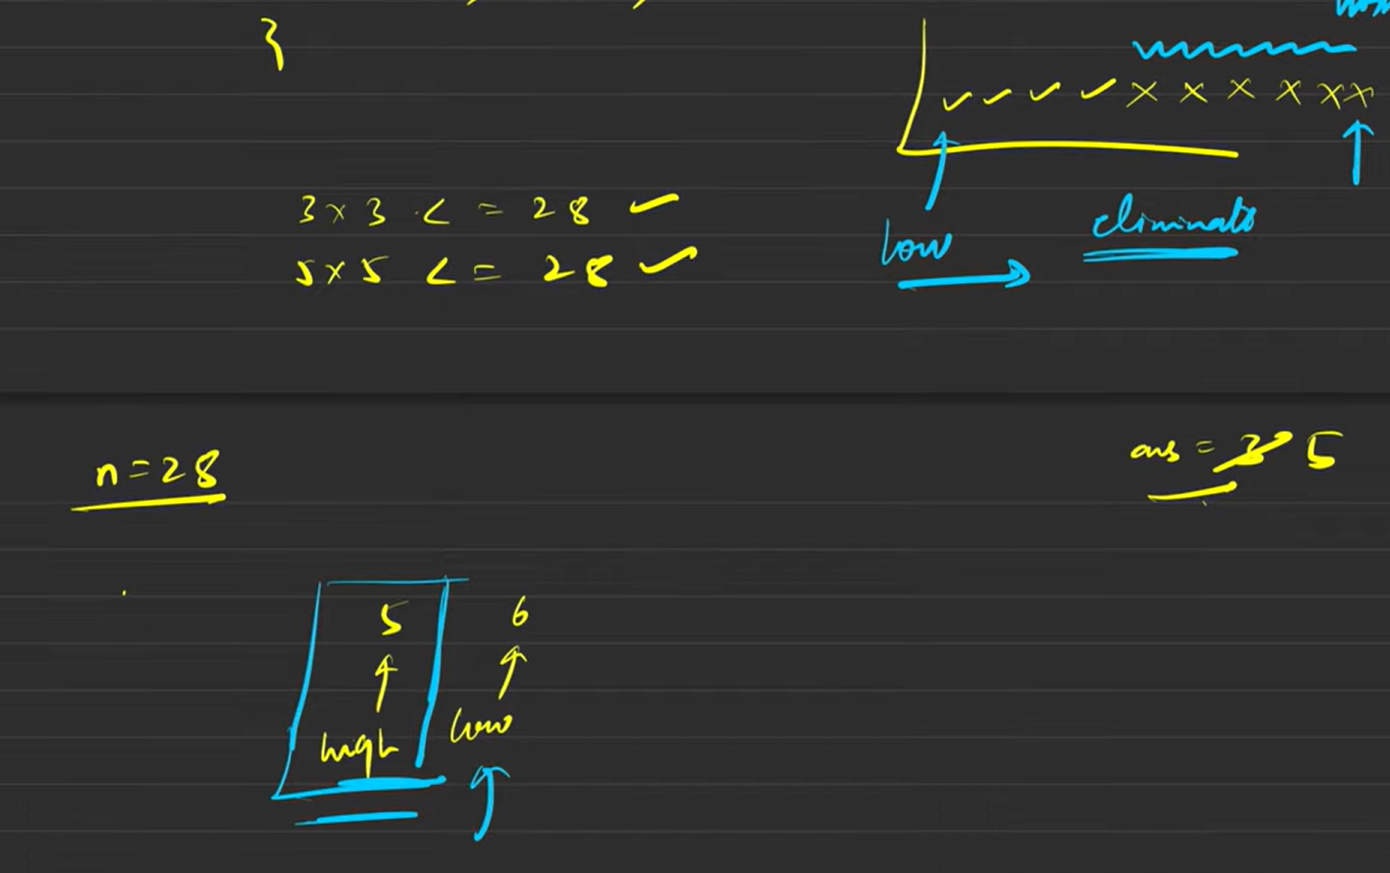 }
✓ ✓ ✓ ✓ × × × × × ×
3 × 3 < = 28 ✓
5 × 5 < = 28 ✓
low
eliminate
n = 28
ans = 3 5
5 6
high low